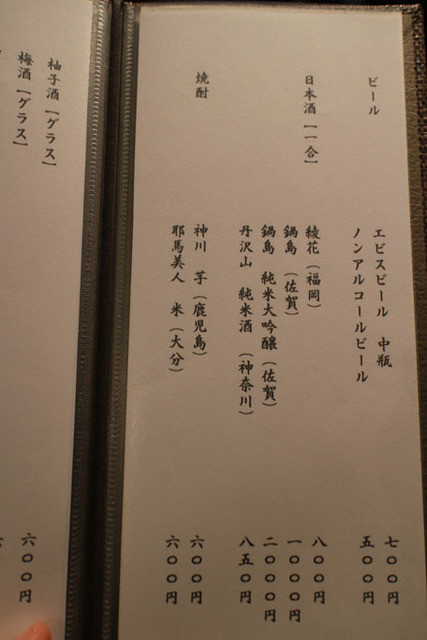 ビール
エビスビール 中瓶 七〇〇円
ノンアルコールビール 五〇〇円
日本酒【一合】
綾花(福岡) 八〇〇円
鍋島(佐賀) 一〇〇〇円
鍋島 純米大吟醸(佐賀) 二〇〇〇円
丹沢山 純米酒(神奈川) 八五〇円
焼酎
神川 芋(鹿児島) 六〇〇円
耶馬美人 米(大分) 六〇〇円
柚子酒【グラス】 六〇〇円
梅酒【グラス】